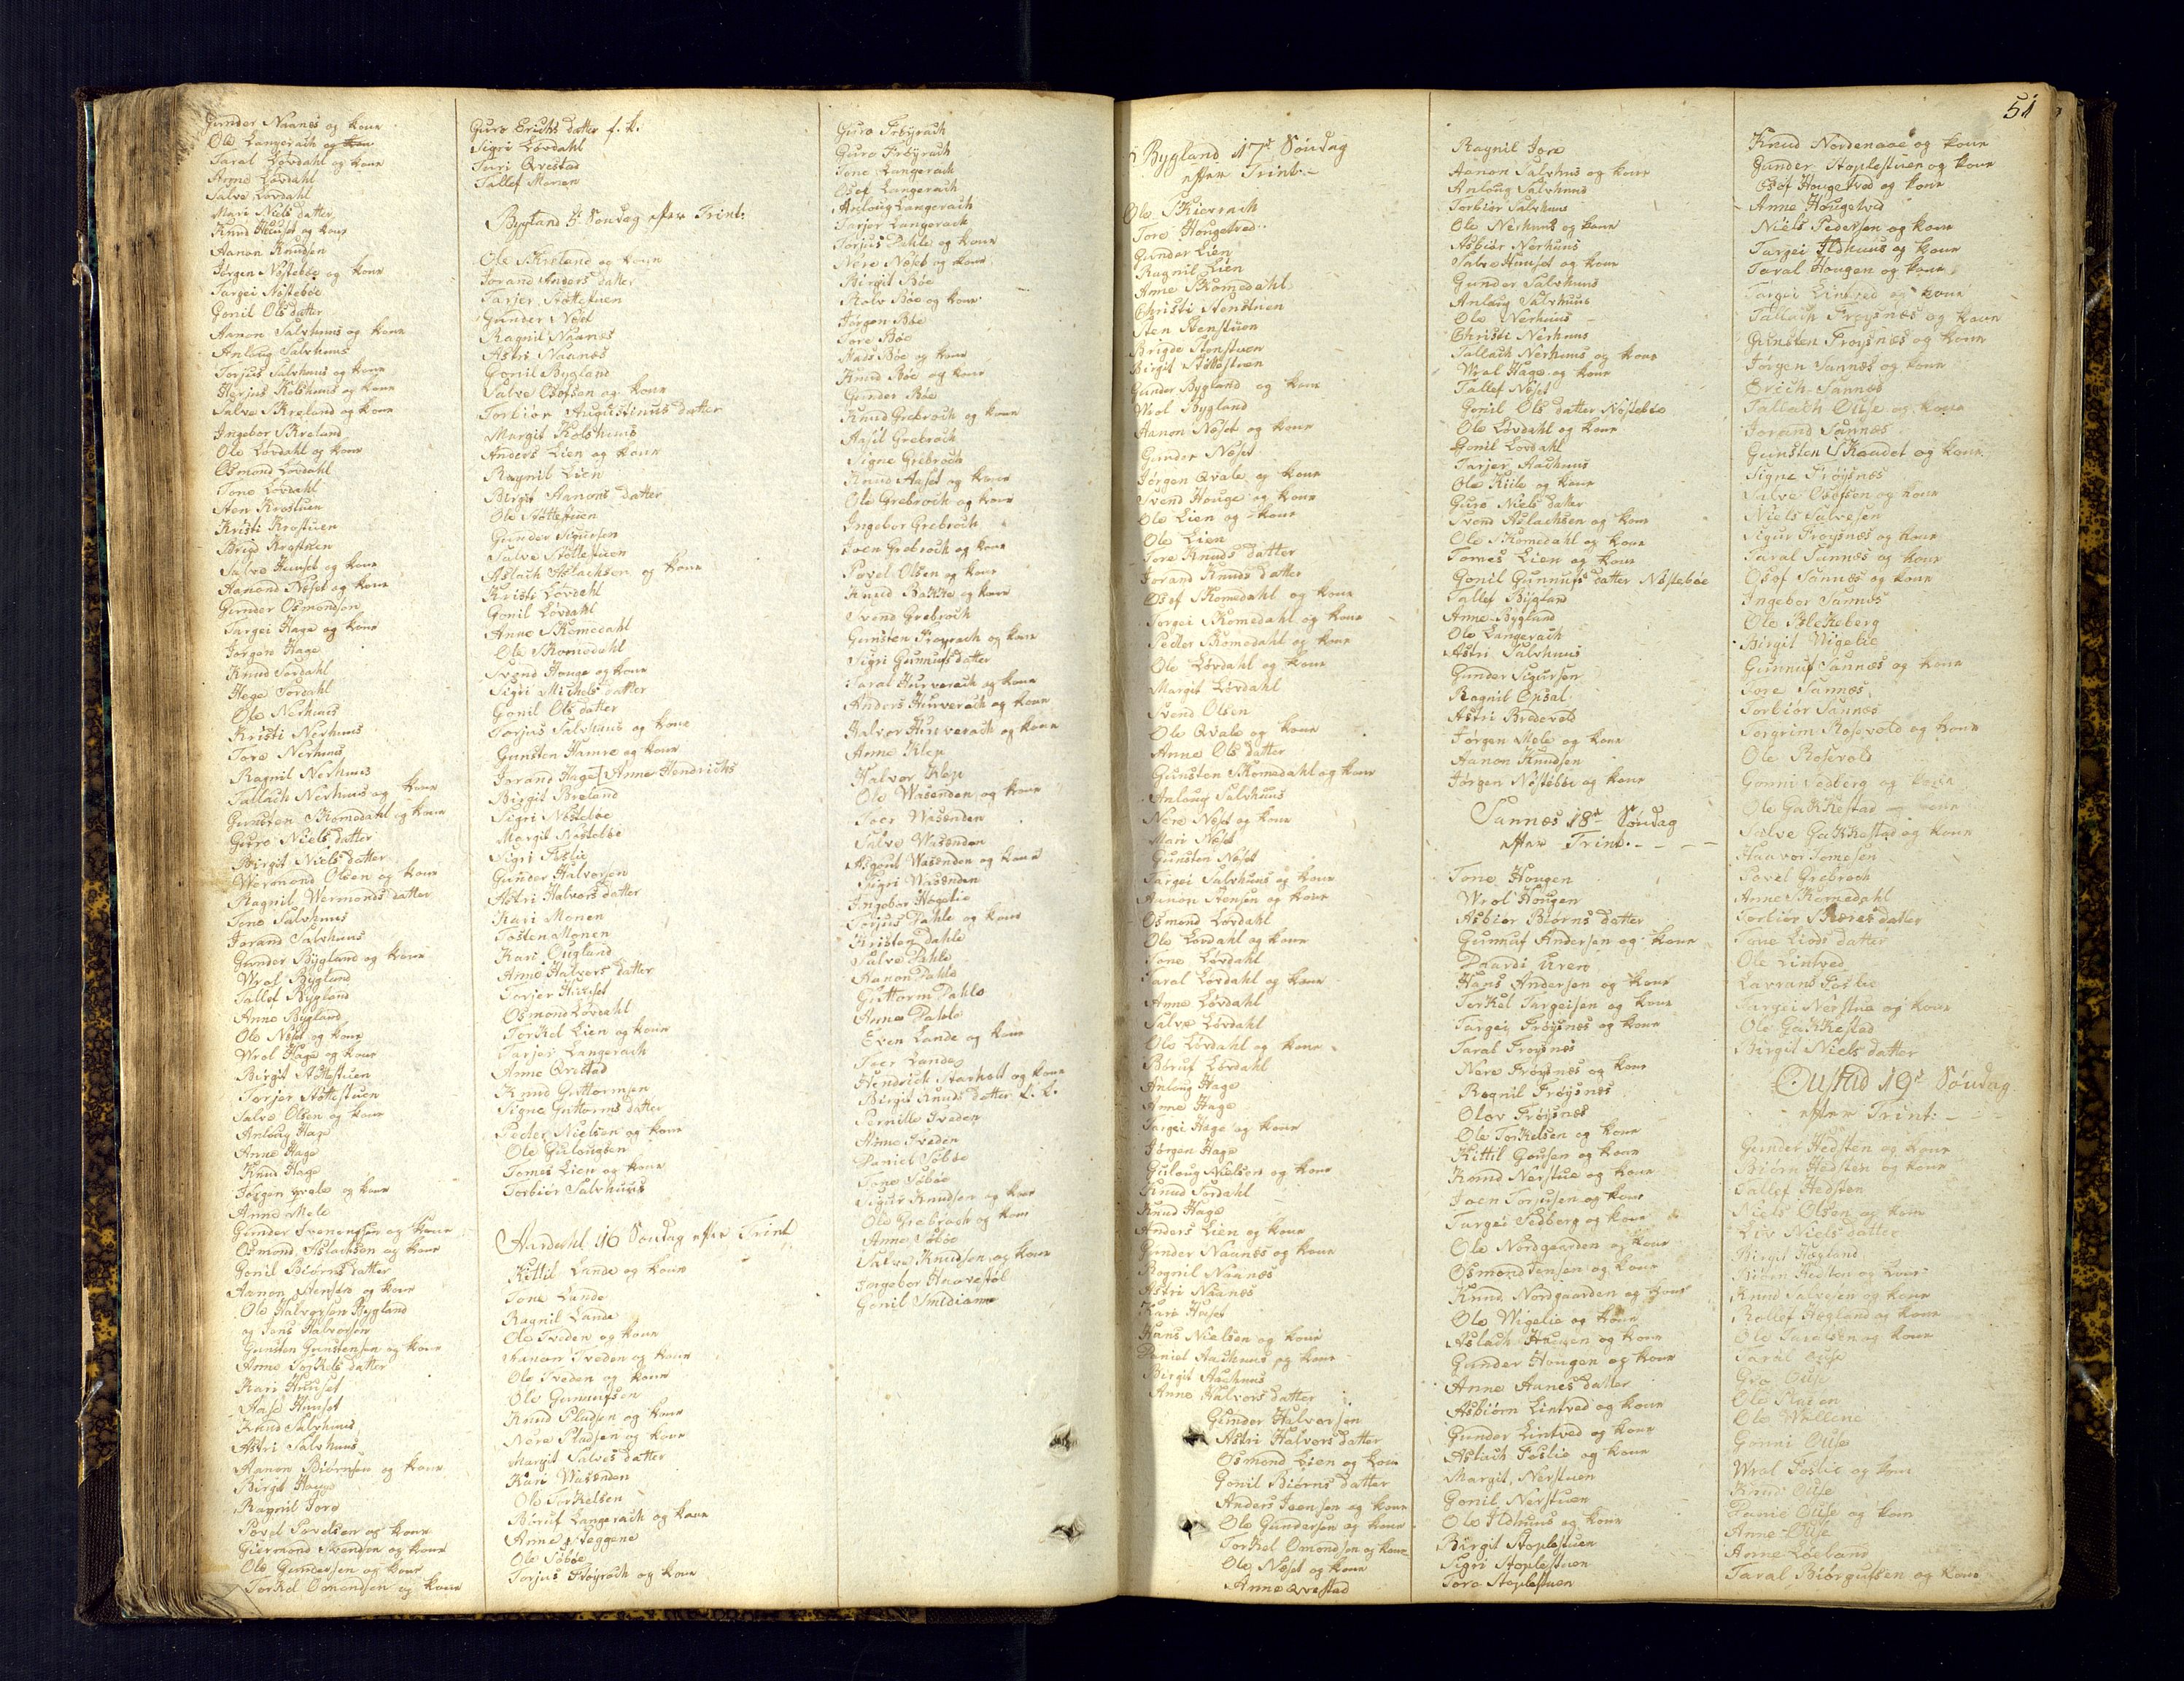 Gunder Naanes og kone
Ole Langerach og kone
Taral Løvdahl og kone
Anne Løvdahl
Salve Løvdahl
Mari Niels datter
Knud Huuset og kone
Aanon Knudsen
Jørgen Nøstebøe og kone
Targei Nøstebøe
Gonil Ols datter
Aanon Salvhuus og kone
Anloug Salvhuus
Torjus Salvhuus og kone
Herjus Kolshuus og kone
Salve Skreland og kone
Ingebor Skreland
Ole Løvdahl og kone
Osmond Løvdahl
Tone Løvdahl
Sten Krostuen
Kristi Krostuen
Brigd Krostuen
Salve Huuset og kone
Aanond Næset og kone
Gunder Osmondsøn
Targei Hage og kone
Jørgen Hage
Knud Sordahl
Hege Sordahl
Ole Nerhuus
Kristi Nerhuus
Tore Nerhuus
Ragnil Nerhuus
Tallach Nerhuus og kone
Gunsten Skomedahl og kone
Guro Niels datter
Birgit Niels datter
Wermond Olsen og kone
Ragnil Wermonds datter
Tone Salvhuus
Jorand Salvhuus
Gunder Bygland og kone
Wrol Bygland
Tallef Bygland
Anne Bygland
Ole Næset og kone
Wrol Hage og kone
Birgit Støttestuen
Torjer Støttestuen
Salve Olsen og kone
Anloug Hage
Anne Hage
Knud Hage
Jørgen Qvale og kone
Anne Mele
Gunder Svenengsen og kone
Osmond Aslachsen og kone
Gonil Biørns datter
Aanon Stensen og kone
Ole Halvorsen Bygland
og Jens Halvorsen
Gunsten Gunstensen og kone
Anne Torkels datter
Kari Huuset
Aase Huuset
Knud Salvhuus
Astri Salvhuus
Aanon Biørnsen og kone
Birgit Hage
Ragnil Jore
Povel Povelsen og kone
Giermond Svendsen og kone
Ole Gundersen og kone
Torkel Omondsen og kone
Guro Erichs datter f. k.
Sigri Løvdahl
Turi Qvestad
Tallef Monen
Bygland Søndag efter Trint:
Ole Skreland og kone
Jorand Anders datter
Tarjer Støttestuen
Gunder Næset
Ragnil Naanes
Astri Naanes
Gonil Bygland
Salve Osofsen og kone
Torbiør Augustinus datter
Margit Kolshuus
Anders Lien og kone
Ragnil Lien
Birgit Aanons datter
Ole Støttestuen
Gunder Sigursen
Salve Støttestuen
Aslach Aslachsen og kone
Kristi Løvdahl
Gonil Løvdahl
Anne Skomedahl
Ole Skomedahl
Svend Houge og kone
Sigri Michels datter
Gonil Ols datter
Torjus Salvhuus og kone
Gunsten Hamre og kone
Jorand Hage Anne Hendrichs
Birgit Breland
Sigri Nøstebøe
Margit Nøstebøe
Sigri Foslie
Gunder Halvorsen
Astri Halvors datter
Kari Monen
Tosten Monen
Kari Ougland
Anne Halvors datter
Torjer Huuset
Osmond Løvdahl
Torkel Lien og kone
Tarjer Langerach
Anne Qvestad
Knud Guttormsen
Signe Guttorms datter
Peder Nielsen og kone
Ole Gulougsen
Tomes Lien og kone
Torbiør Salvhuus
Aardahl 16 Søndag efter Trint
Kittil Lande og kone
Tone Lande
Ragnil Lande
Ole Tveden og kone
Aanon Tveden og kone
Ole Tveden og kone
Ole Gunnufsen
Knud Pladsen og kone
Nere Pladsen og kone
Margit Salves datter
Kari Wasenden
Ole Torkelsen
Børuf Langerach og kone
Anne Steggene
Ole Søbøe
Torjus Frøyrach og kone
Guro Frøyrach
Guro Frøyrach
Tone Langerach
Osof Langerach
Anloug Langerach
Tarjer Langerach
Torjus Dahle og kone
Nere Næset og kone
Birgit Bøe
Rolv Bøe og kone
Jørgen Bøe
Tore Bøe
Mads Bøe og kone
Knud Bøe og kone
Gunder Bøe
Knud Grebroch og kone
Aasil Grebroch
Signe Grebroch
Knud Aaset og kone
Ole Grebroch og kone
Ingebor Grebroch
Joen Grebroch og kone
Povel Olsen og kone
Knud Bakke og kone
Svend Grebroch
Gunsten Frøyrach og kone
Sigri Gunnufs datter
Taral Hurverach og kone
Anders Hurverach og kone
Halvor Hurverach og kone
Anne Klep
Halvor Klep
Ole Wasenden og kone
Toer Wasenden
Salve Wasenden
Asgout Wasenden og kone
Sigri Wasenden
Ingebor Høgelie
Torjus Dahle og kone
Kristen Dahle
Salve Dahle
Aanon Dahle
Guttorm Dahle
Anne Dahle
Even Lande og kone
Toer Lande
Hendrich Starholt og kone
Birgit Knuds datter L. L.
Pernille Tveden
Anne Tveden
Daniel Søbøe
Tone Søbøe
Sigur Knudsen og kone
Ole Grebroch og kone
Anne Søbøe
Salve Knudsen og kone
Ingebor Knavestøl
Gonil Smidiane
51
i Bygland 17de Søndag
efter Trint.
Ole Skierrach
Tore Hougetved
Gunder Lien
Ragnil Lien
Anne Skomedahl
Christi Stenstuen
Sten Stenstuen
Brigde Stenstuen
Birgit Støttestuen
Gunder Bygland og kone
Wrol Bygland
Aanon Næset og kone
Gunder Næset
Jørgen Qvale og kone
Svend Houge og kone
Ole Lien og kone
Ole Lien
Tore Knuds datter
Jorand Knuds datter
Osof Skomedahl og kone
Torgei Skomedahl og kone
Peder Skomedahl og kone
Ole Løvdahl og kone
Margit Løvdahl
Svend Olsen
Ole Qvale og kone
Anne Ols datter
Gunsten Skomedahl og kone
Anloug Salvhuus
Nere Næset og kone
Mari Næset
Gunsten Næset
Targei Salvhuus og kone
Aanon Stensen og kone
Osmond Løvdahl
Ole Løvdahl og kone
Tone Løvdahl
Taral Løvdahl og kone
Anne Løvdahl
Salve Løvdahl
Ole Løvdahl og kone
Børuf Løvdahl
Anloug Hage
Anne Hage
Targei Hage og kone
Jørgen Hage
Guloug Nielsen og kone
Knud Sordahl
Knud Hage
Anders Lien og kone
Gunder Naanes og kone
Ragnil Naanes
Astri Naanes
Kari Huset
Hans Nielsen og kone
Daniel Aachuus og kone
Birgit Aachuus
Anne Halvors datter
Gunder Halvorsen
Astri Halvors datter
Osmond Lien og kone
Gonil Biørns datter
Anders Joensen og kone
Ole Gundersen og kone
Torkel Omondsen og kone
Ole Næset og kone
Anne Qvestad
Ragnil Jore
Aanon Salvhus og kone
Anloug Salvhuus
Torbiør Salvhuus
Ole Nerhuus og kone
Asbiør Nerhuus
Salve Huuset og kone
Gunder Salvhuus
Anloug Salvhuus
Ole Nerhuus
Christi Nerhuus
Tallach Nerhuus og kone
Wrol Hage og kone
Tallef Næset
Gonil Ols datter Nøstebøe
Ole Løvdahl og kone
Gonil Løvdahl
Tarjer Aachuus
Ole Kiile og kone
Guro Niels datter
Svend Aslachsen og kone
Ole Skomedahl og kone
Tomes Lien og kone
Gonil Gunnufs datter Nøstebøe
Tallef Bygland
Anne Bygland
Ole Langerach
Astri Salvhuus
Gunder Sigursen
Ragnil Opsal
Astri Bredevold
Jørgen Mele og kone
Aanon Knudsen
Jørgen Nøstebøe og kone
Sannes 18de Søndag
efter Trint.
Tone Hougen
Wrol Hougen
Asbiør Biørns datter
Gunnuf Andersen og kone
Duardi Uren
Hans Andersen og kone
Terkel Targeisen og kone
Targei Frøysnes og kone
Taral Frøysnes
Nere Frøysnes og kone
Ragnil Frøysnes
Olav Frøysnes
Ole Torkelsen og kone
Kittil Gousen og kone
Knud Nerstue og kone
Joen Torjusen og kone
Targei Sedberg og kone
Ole Nordgaarden og kone
Osmond Jensen og kone
Knud Nordgaarden og kone
Ole Wigelie og kone
Aslach Hougen og kone
Gunder Hougen og kone
Anne Aanes datter
Asbiørn Lintved og kone
Gunder Lintved og kone
Aslach Foslie og kone
Margit Nerstuen
Gonil Nerstuen
Ole Ildhuus og kone
Birgit Stoplestuen
Sigri Stoplestuen
Tore Stoplestuen
Knud Nordenaae og kone
Gunder Stoplestuen og kone
Osof Hougetved og kone
Anne Hougetved
Niels Pedersen og kone
Targei Ildhuus og kone
Taral Hougen og kone
Targei Lintved og kone
Tallach Frøysnæs og kone
Gunsten Frøysnæs og kone
Jørgen Sannæs og kone
Erich Sannæs
Tallach Ouse og kone
Jorand Sannæs
Gunsten Skaadet og kone
Signe Frøysnæs
Salve Osofsen og kone
Niels Salvesen
Sigur Frøysnæs og kone
Taral Sannæs og kone
Osof Sannæs og kone
Ingebor Sannæs
Ole Blekeberg
Birgit Wigelie
Gunnuf Sannæs og kone
Tore Sannæs
Torbiør Sannæs
Torgrim Rosevold og kone
Ole Rosevold
Gonni Sedberg og kone
Ole Gakkestad og kone
Salve Gakkestad og kone
Haavor Tomesen
Povel Grebroch
Anne Skomedahl
Torbiør datter
Tone Liods datter
Ole Lintved
Lavrans Foslie
Targei Nerstue og kone
Ole Gakkestad
Birgit Niels datter
Oustad 19de Søndag
efter Trint:
Gunder Hedsten og kone
Biørn Hedsten og kone
Tallef Hedsten
Niels Olsen og kone
Liv Niels datter
Birgit Hægland
Biørn Hedsten og kone
Knud Salvesen og kone
Rollef Hægland og kone
Ole Taralsen og kone
Taral Ouse
Gro Ouse
Ole
Ole Wallene
Gonni Ouse
Wral Foslie og kone
Knud Ouse
Ouse og kone
Anne Ouse
Anne Løeland
Taral Biørgufsen og kone